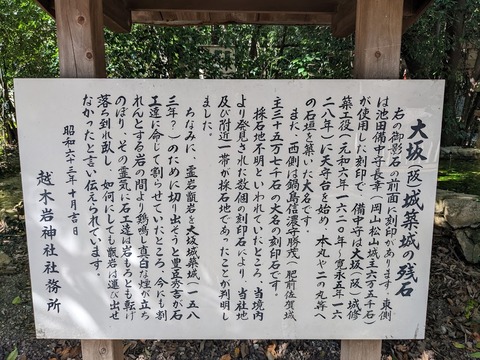 大坂(阪)城築城の残石
右の御影石の前面に刻印があります。東側
は池田備中守長幸(岡山松山城主六万五千石)
が使用した刻印で、備中守は大坂(阪)城修
築工役(元和六年一六二〇年・寛永五年一六
二八年)に天守台を始め、本丸や二の丸等へ
の石垣を築いた大名です。
また、西側は鍋島信濃守勝茂(肥前佐賀城
主三十五万七千石)の大名の刻印石です。
採石地不明といわれていたところ、当境内
より発見された数個の刻印石により、当社地
及び附近一帯が採石地であったことが判明し
ました。
ちなみに、霊岩甑岩を大坂城築城(一五八
三年?)のために切り出そうと豊臣秀吉が石
工達に命じて割らせていたところ、今にも割
れんとする岩の間より鶏鳴し真白な煙が立ち
のぼり、その霊気に石工達は岩もろとも転げ
落ち倒れ臥し、如何にしても甑岩は運び出せ
なかったと言い伝えられています。
昭和六十三年十月吉日
越木岩神社社務所